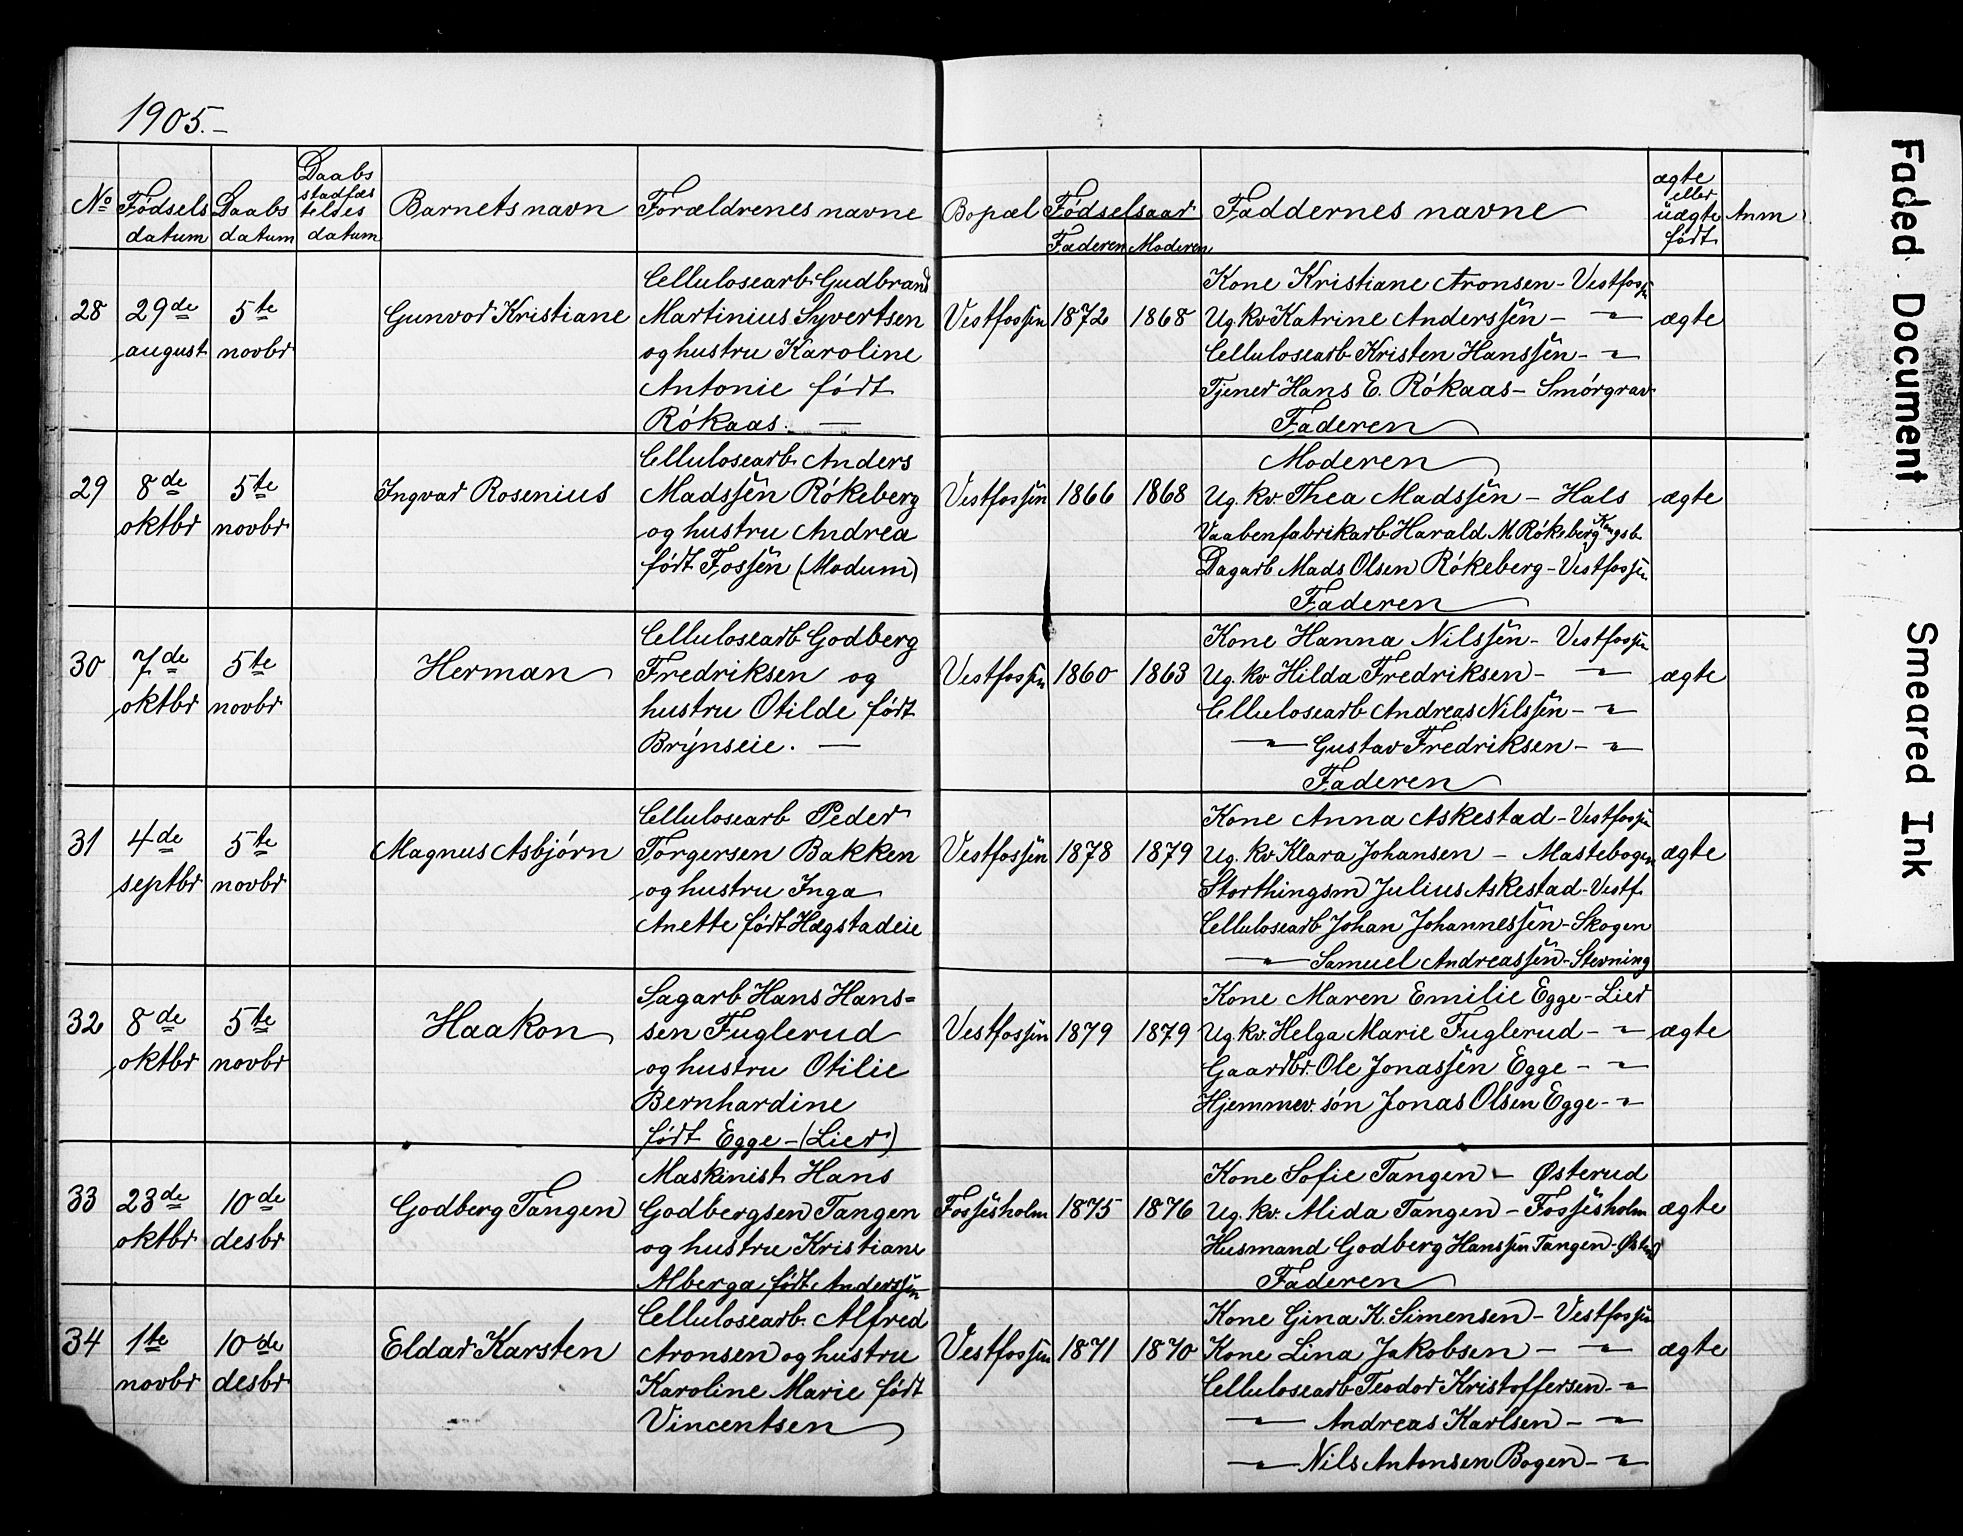 1905.-
No
Fødsels datum
Daabs datum
Daabs stadfæs teldses datum
Barnets navn
Forældrenes navne
Bopæl
Fødselsaar
Faderen
Moderen
Faddernes navne
ægte eller uægte født
Anm
28
29de august
5te novbr
Gunvor Kristiane
Cellulosearb. Gudbrand
Martinius Syvertsen
og hustru Karoline
Antonie født
Røkaas. —
Vestfossen
1872
1868
Kone Kristiane Aronsen - Vestfossen
Ug. kv Katrine Anderssen - -"-
Cellulosearb Kristen Hanssen - -"-
Tjener Hans E. Røkaas - Smørgrav
Faderen
ægte
29
8de oktbr
5te novbr
Ingvar Rosenius
Cellulosearb. Anders
Madssen Røkeberg
og hustru Andrea
født Fossen (Modum)
Vestfossen
1866
1868
Moderen
Ug. kv. Thea Madssen - Hals
Vaabenfabrikarb Harald M Røkeberg Kongsb.
Dagarb Mads Olsen Røkeberg - Vestfossen
Faderen
ægte
30
7de oktbr
5te novbr
Herman
Cellulosearb Godberg
Fredriksen og
hustru Otilde født
Brynseie. —
Vestfossen
1860
1863
Kone Hanna Nilssen - Vestfossen
Ug. kv Hilda Fredriksen - -"-
Cellulosearb Andreas Nilssen - -"-
-"- Gustav Fredriksen - -"-
Faderen
ægte
31
4de septbr
5te novbr
Magnus Asbjørn
Cellulosearb Peder
Torgersen Bakken
og hustru Inga
Anette født Hægstadeie
Vestfossen
1878
1879
Kone Anna Askestad - Vestfossen
Ug. kv Klara Johansen - Mastebogen
Storthingsm Julius Askestad - Vestf.
Cellulosearb Johan Johannessen - Skogen
-"- Samuel Andreassen - Stevning
ægte
32
8de oktbr
5te novbr
Haakon
Sagarb Hans Hans=
sen Fuglerud
og hustru Otilie
Bernhardine
født Egge - (Lier)
Vestfossen
1879
1879
Kone Maren Emilie Egge - Lier
Ug. kv. Helga Marie Fuglerud - -"-
Gaardbr. Ole Jonassen Egge - -"-
Hjemmev. søn Jonas Olsen Egge - -"-
ægte
33
23de oktbr
10de desbr
Godberg Tangen
Maskinist Hans
Godbergsen Tangen
og hustru Kristiane
Alberga født Anderssen
Fossesholm
1875
1876
Kone Sofie Tangen - Østerud
Ug. kv. Alida Tangen - Fossesholm
Husmand Godberg Hanssen Tangen - Østerud
Faderen
ægte
34
1te novbr
10de desbr
Eldar Karsten
Cellulosearb. Alfred
Aronsen og hustru
Karoline Marie født
Vincentsen
Vestfossen
1871
1870
Kone Gina K. Simensen - Vestfossen
Kone Lina Jakobsen - -"-
Cellulosearb Teodor Kristoffersen - -"-
-"- Andreas Karlsen - -"-
-"- Nils Antonsen Bogen - -"-
ægte
Faded Document
Smeared Ink